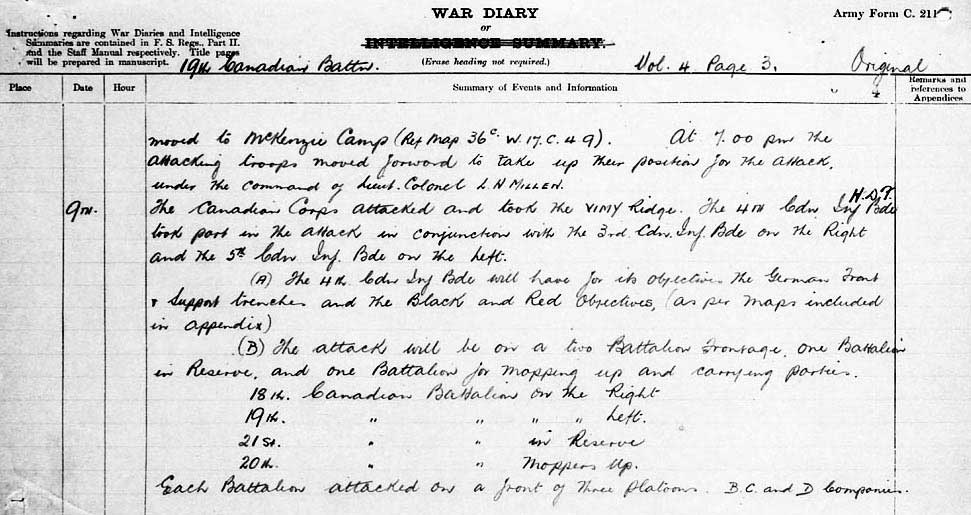 WAR DIARY
or
INTELLIGENCE SUMMARY.
(Erase heading not required.)
Army Form C. 211
Instructions regarding War Diaries and Intelligence
Summaries are contained in F. S. Regs., Part II.
and the Staff Manual respectively. Title pages
will be prepared in manuscript.
19th Canadian Battn.
Vol. 4 Page 3.
Original
4
Place
Date
Hour
Summary of Events and Information
Remarks and
references to
Appendices
moved to McKenzie Camp (Ref Map 36c. W. 17. C. 4 9). At 7.00 pm the
attacking troops moved forward to take up their position for the attack,
under the command of Lieut. Colonel L. H MILLEN.
H.D.F.
9TH. The Canadian Corps attacked and took the VIMY Ridge. The 4TH Cdn. Inf Bde
took part in the attack in conjunction with the 3rd. Cdn. Inf. Bde on the Right
and the 5th Cdn Inf. Bde on the Left.
(A) The 4th Cdn Inf Bde will have for its objectives the German Front
& Support trenches and the Black and Red Objectives, (as per Maps included
in appendix)
(B) The attack will be on a two Battalion Frontage, one Battalion
in Reserve, and one Battalion for Mopping up and carrying parties.
18th. Canadian Battalion on the Right
19th. " " " " Left.
21st. " " in Reserve
20th. " " Moppers Up.
Each Battalion attacked on a front of three platoons. B. C. and D Companies.